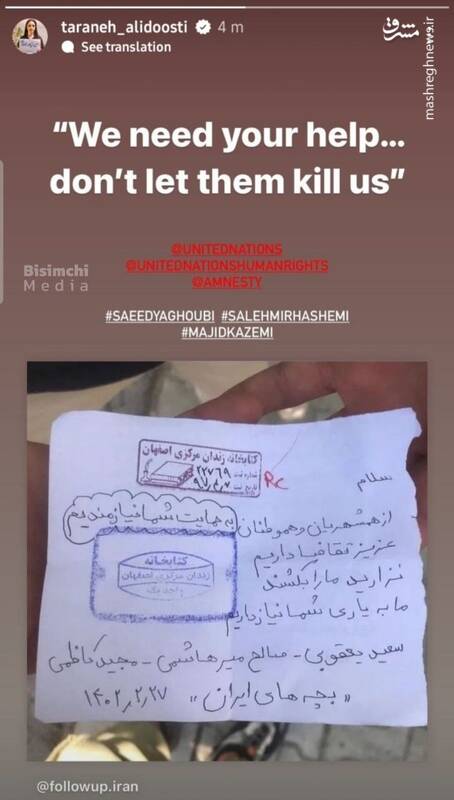 taraneh_alidoosti 4 m
See translation
مشرق
mashreghnews.ir
“We need your help...
don’t let them kill us”
@UNITEDNATIONS
@UNITEDNATIONSHUMANRIGHTS
@AMNESTY
Bisimchi
Media
#SAEEDYAGHOUBI #SALEHMIRHASHEMI
#MAJIDKAZEMI
کتابخانه زندان مرکزی اصفهان
شماره ثبت ۲۲۷۶۹
تاریخ ثبت
RC
سلام
از همشهریان و هموطنان به حمایت شما نیازمندیم
عزیز تقاضا داریم
نزارید ما را بکشند
ما به یاری شما نیاز داریم
کتابخانه
زندان مرکزی اصفهان
سعید یعقوبی - صالح میرهاشمی - مجید کاظمی
«بچه های ایران» ۱۴۰۲٫۲٫۲۷
@followup.iran